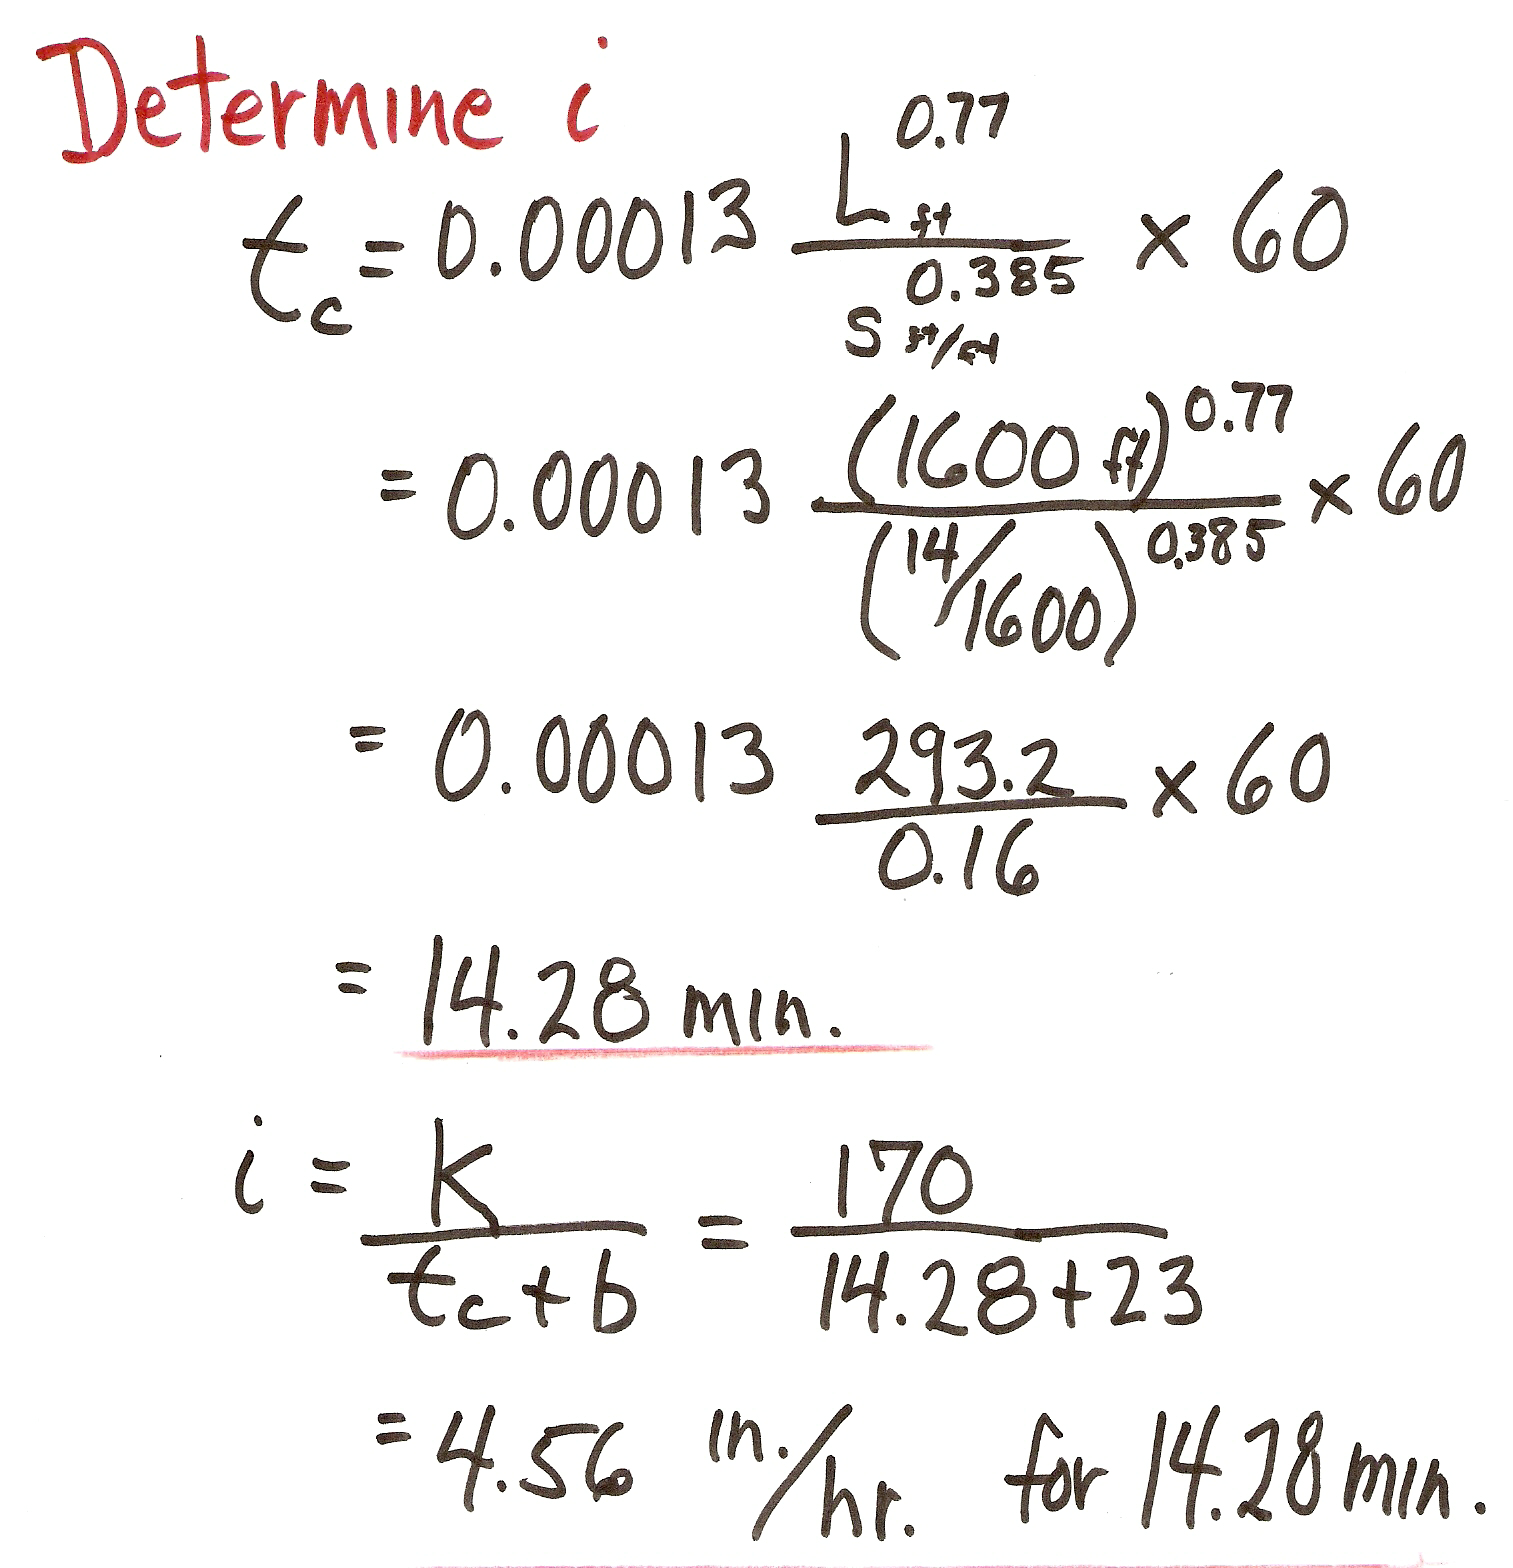 Determine i
t_c = 0.00013 L_ft^0.77 / S_ft/ft^0.385 × 60
= 0.00013 (1600 ft)^0.77 / (14/1600)^0.385 × 60
= 0.00013 293.2 / 0.16 × 60
= 14.28 min.
i = K / t_c + b = 170 / 14.28 + 23
= 4.56 in./hr. for 14.28 min.